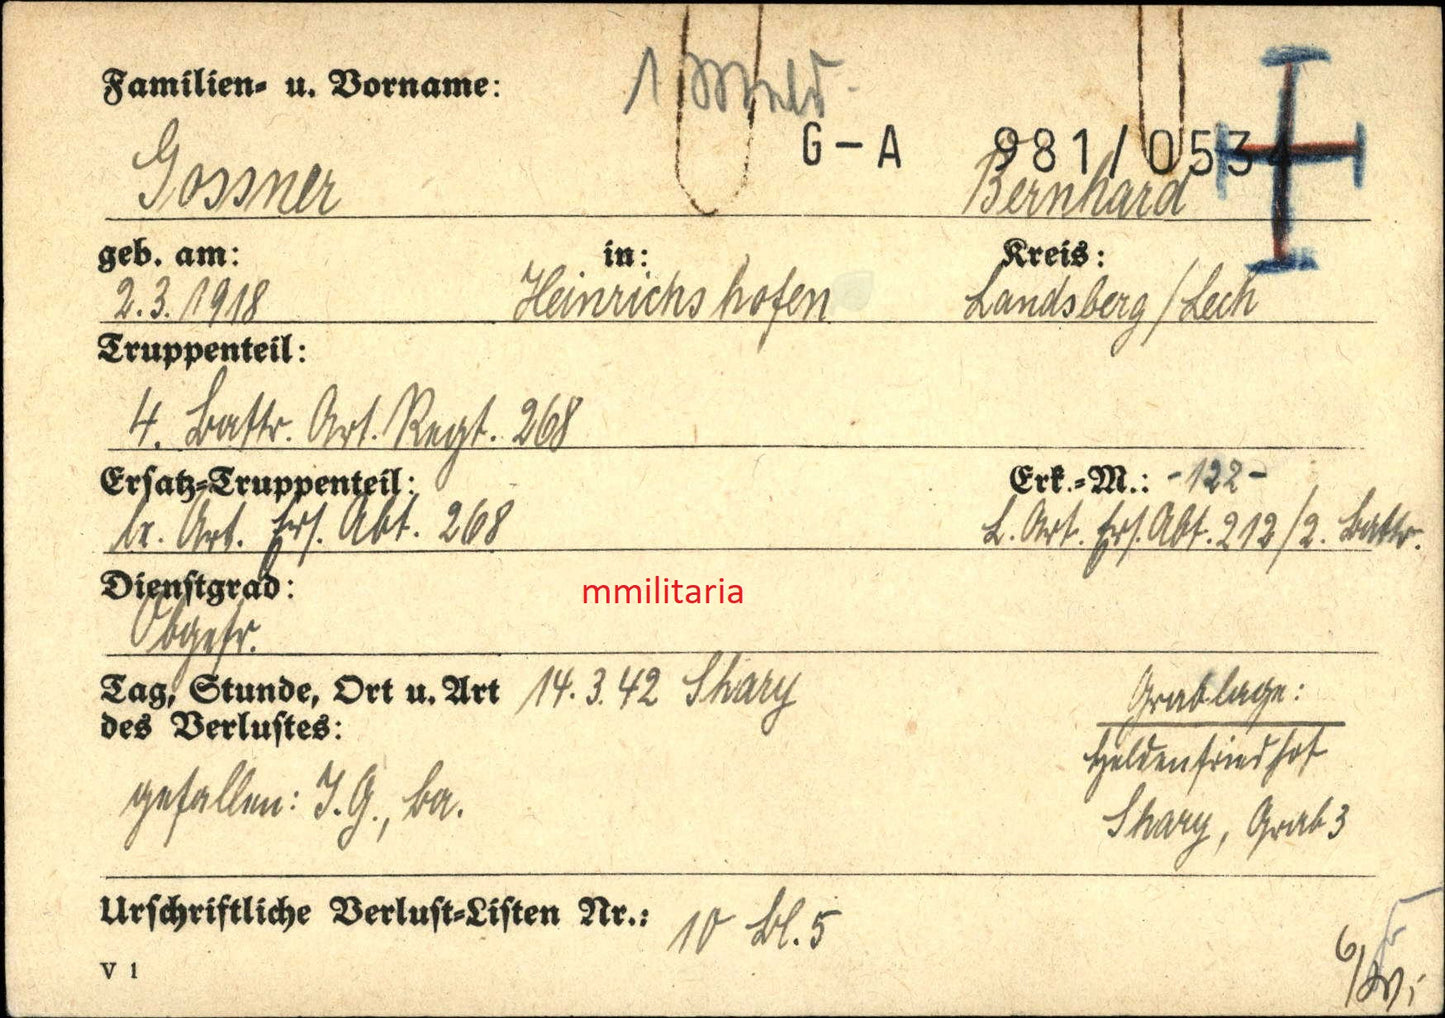 Familien- u. Vorname:
1 Meld.
G-A 981/0534
Gossner Bernhard
geb. am: in: Kreis:
2.3.1918 Heinrichshofen Landsberg/Lech
Truppenteil:
4. Battr. Art. Regt. 268
Ersatz-Truppenteil: Erk.-M.: -122-
lei. Art. Ers. Abt. 268 L. Art. Ers. Abt. 212/2. Battr.
Dienstgrad:
mmilitaria
Obgefr.
Tag, Stunde, Ort u. Art 14.3.42 Shary
des Verlustes:
Grablage:
Heldenfriedhof
gefallen: I.G., Ba.
Shary, Grab 3
Urschriftliche Verlust-Listen Nr.: 10 Bl. 5
V 1